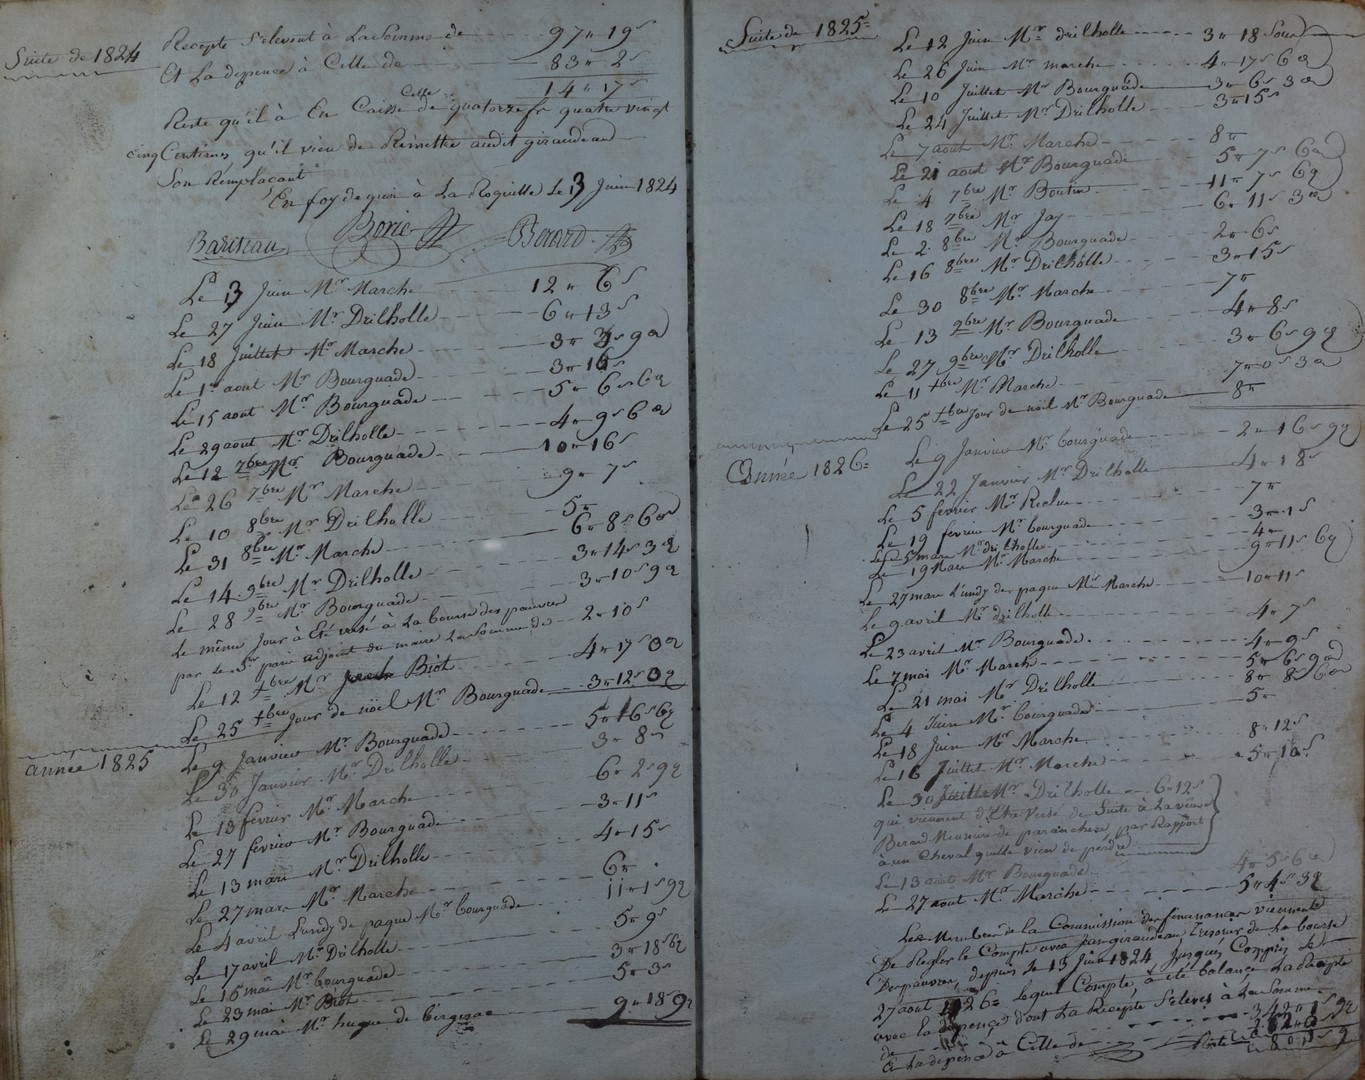 Suite de 1824
Recepte S'elevent à La Somme de 97 " 19 s
Et La depence à Celle de 83 " 2 s
14 " 17 s
Reste qu'il à En Caisse Cette de quatorze fr quatre vingt
cinq Centimes qu'il vien de Remettre audit giraudeau
Son Remplaçant
En foy de quoi à La Roquille Le 13 Juin 1824
Bariteau Borie Berard
Le 13 Juin Mr Marche 12 " 6 s
Le 27 Juin Mr Drilholle 6 " 13 s
Le 18 Juillet Mr Marche 3 " 3 s 9 d
Le 1r aout Mr Bourguade 3 " 16 s
Le 15 aout Mr Bourguade 5 " 6 s 6 d
Le 29 aout Mr Drilholle 4 " 9 s 6 d
Le 12 7bre Mr Bourguade 10 " 16 s
Le 26 7bre Mr Marche 9 " 7 s
Le 10 8bre Mr Drilholle 5 "
Le 31 8bre Mr Marche 6 " 8 s 6 d
Le 14 9bre Mr Drilholle 3 " 14 s 3 d
Le 28 9bre Mr Bourguade 3 " 10 s 9 d
Le même Jour à Eté versé à La bourse des pauvres
par le Sr adjoint du maire La Somme de 2 " 10 s
Le 12 xbre Mr Biot 4 " 17 s 0 d
Le 25 xbre Jour de nöel Mr Bourguade 3 " 12 s 0 d
année 1825
Le 9 Janvier Mr Bourguade 5 " 16 s 6 d
Le 30 Janvier Mr Drilholle 3 " 8 s
Le 13 fevrier Mr Marche 6 " 2 s 9 d
Le 27 fevrier Mr Bourguade 3 " 11 s
Le 13 mars Mr Drilholle 4 " 15 s
Le 27 mars Mr Marche 6 "
Le 4 avril Lundy de paque Mr bourguade 11 " 1 s 9 d
Le 17 avril Mr Drilholle 5 " 9 s
Le 15 mai Mr bourguade 3 " 18 s 6 d
Le 23 mai Mr Biot 5 " 3 s
Le 29 mai Mr hugue de bergerac 9 " 18 s 9 d
Suite de 1825
Le 12 Juin Mr drilholle 3 " 18 Sous
Le 26 Juin Mr marche 4 " 17 s 6 d
Le 10 Juillet Mr Bourguade 3 " 6 s 3 d
Le 24 Juillet Mr Drilholle 3 " 15 s
Le 7 aout Mr Marche 8 "
Le 21 aout Mr Bourguade 5 " 7 s 6 d
Le 4 7bre Mr Boutin 11 " 7 s 6 d
Le 18 7bre Mr Jay 6 " 11 s 3 d
Le 2 8bre Mr Bourguade 2 " 6 s
Le 16 8bre Mr Drilholle 3 " 15 s
Le 30 8bre Mr Marche 7 "
Le 13 9bre Mr Bourguade 4 " 8 s
Le 27 9bre Mr Drilholle 3 " 6 s 9 d
Le 11 xbre Mr Marche 7 " 0 s 3 d
Le 25 xbre Jour de noil Mr Bourguade 8 "
Année 1826
Le 9 Janvier Mr bourguade 2 " 16 s 9 d
Le 22 Janvier Mr Drilholle 4 " 18 s
Le 5 fevrier Mr 7 "
Le 19 fevrier Mr bourguade 3 " 1 s
Le 5 mars Mr drilholle 4 "
Le 19 Mars Mr Marche 9 " 11 s 6 d
Le 27 mars Lundy de paque Mr Marche 10 " 11 s
Le 9 avril Mr drilholle 4 " 7 s
Le 23 avril Mr Bourguade 4 " 9 s
Le 7 mai Mr Marche 5 " 6 s 9 d
Le 21 mai Mr Drilholle 8 " 8 s 6 d
Le 4 Juin Mr bourguade 5 "
Le 18 Juin Mr Marche 8 " 12 s
Le 16 Juillet Mr Marche 5 " 10 s
Le 30 Juillet Mr Drilholle 6 " 12 s
qui viennent d'Etre Versé de Suite à La veuve
Berard Meunière de par Rapport
à un Cheval quelle vien de perdre
Le 13 aout Mr Bourguade 4 " 5 s 6 d
Le 27 aout Mr Marche 5 " 4 s 3 d
Les Membres de la Commission des finances viennent
De Regler le Compte avec Jan giraudeau Tresorier de La bourse
Des pauvres, depuis le 13 Juin 1824 Jusques Compris Le
27 aout 1826 lequel Compte, à été balancé La Recepte
avec la depence dont La Recepte S'eleve à La Somme
de 342 " 1 s 9 d
Et La depence à Celle de
Reste